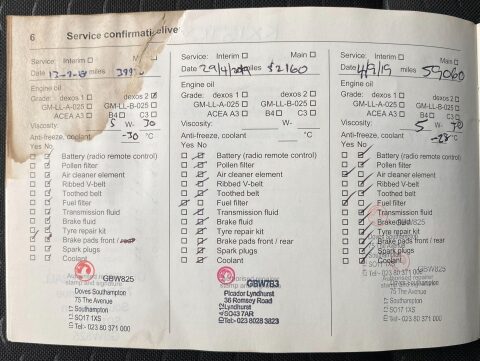 6 Service confirmati
Service: Interim Main
Date miles
Engine oil
Grade: dexos 1 dexos 2
GM-LL-B-025
ACEA A3 B4 C3
Viscosity: 5 W- 30
Anti-freeze, coolant -30 °C
Yes No
Battery (radio remote control)
Pollen filter
Air cleaner element
Ribbed V-belt
Toothed belt
Fuel filter
Transmission fluid
Brake fluid
Tyre repair kit
Brake pads front /
Spark plugs
Coolant
GBW825
Doves Southampton
75 The Avenue
Southampton
SO17 1XS
Tel:- 023 80 371 000
Service: Interim Main
Date 29/4/2019 miles 52160
Engine oil
Grade: dexos 1 dexos 2
GM-LL-A-025 GM-LL-B-025
ACEA A3 B4 C3
Viscosity: W-
Anti-freeze, coolant °C
Yes No
Battery (radio remote control)
Pollen filter
Air cleaner element
Ribbed V-belt
Toothed belt
Fuel filter
Transmission fluid
Brake fluid
Tyre repair kit
Brake pads front / rear
Spark plugs
Coolant
Authorised repairer
stamp and signature
GBW7B3
Picador Lyndhurst
36 Romsey Road
Lyndhurst
SO43 7AR
Tel:- 023 8028 3823
Service: Interim Main
Date 4/9/19 miles 59060
Engine oil
Grade: dexos 1 dexos 2
GM-LL-A-025 GM-LL-B-025
ACEA A3 B4 C3
Viscosity: 5 W- 30
Anti-freeze, coolant -28 °C
Yes No
Battery (radio remote control)
Pollen filter
Air cleaner element
Ribbed V-belt
Toothed belt
Fuel filter
Transmission fluid
Brake fluid
Tyre repair kit
Brake pads front / rear
Spark plugs
Coolant
Authorised repairer
stamp and signature
GBW825
Doves Southampton
75 The Avenue
Southampton
SO17 1XS
Tel:- 023 80 371 000